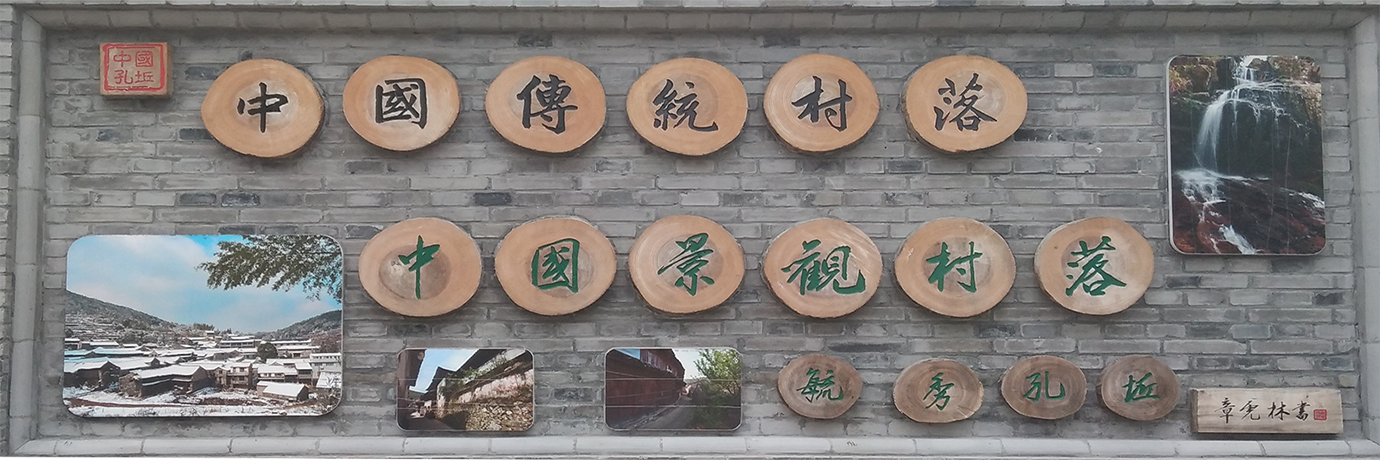 中國
孔坵
中國傳統村落
中國景觀村落
毓秀孔坵
章 林書